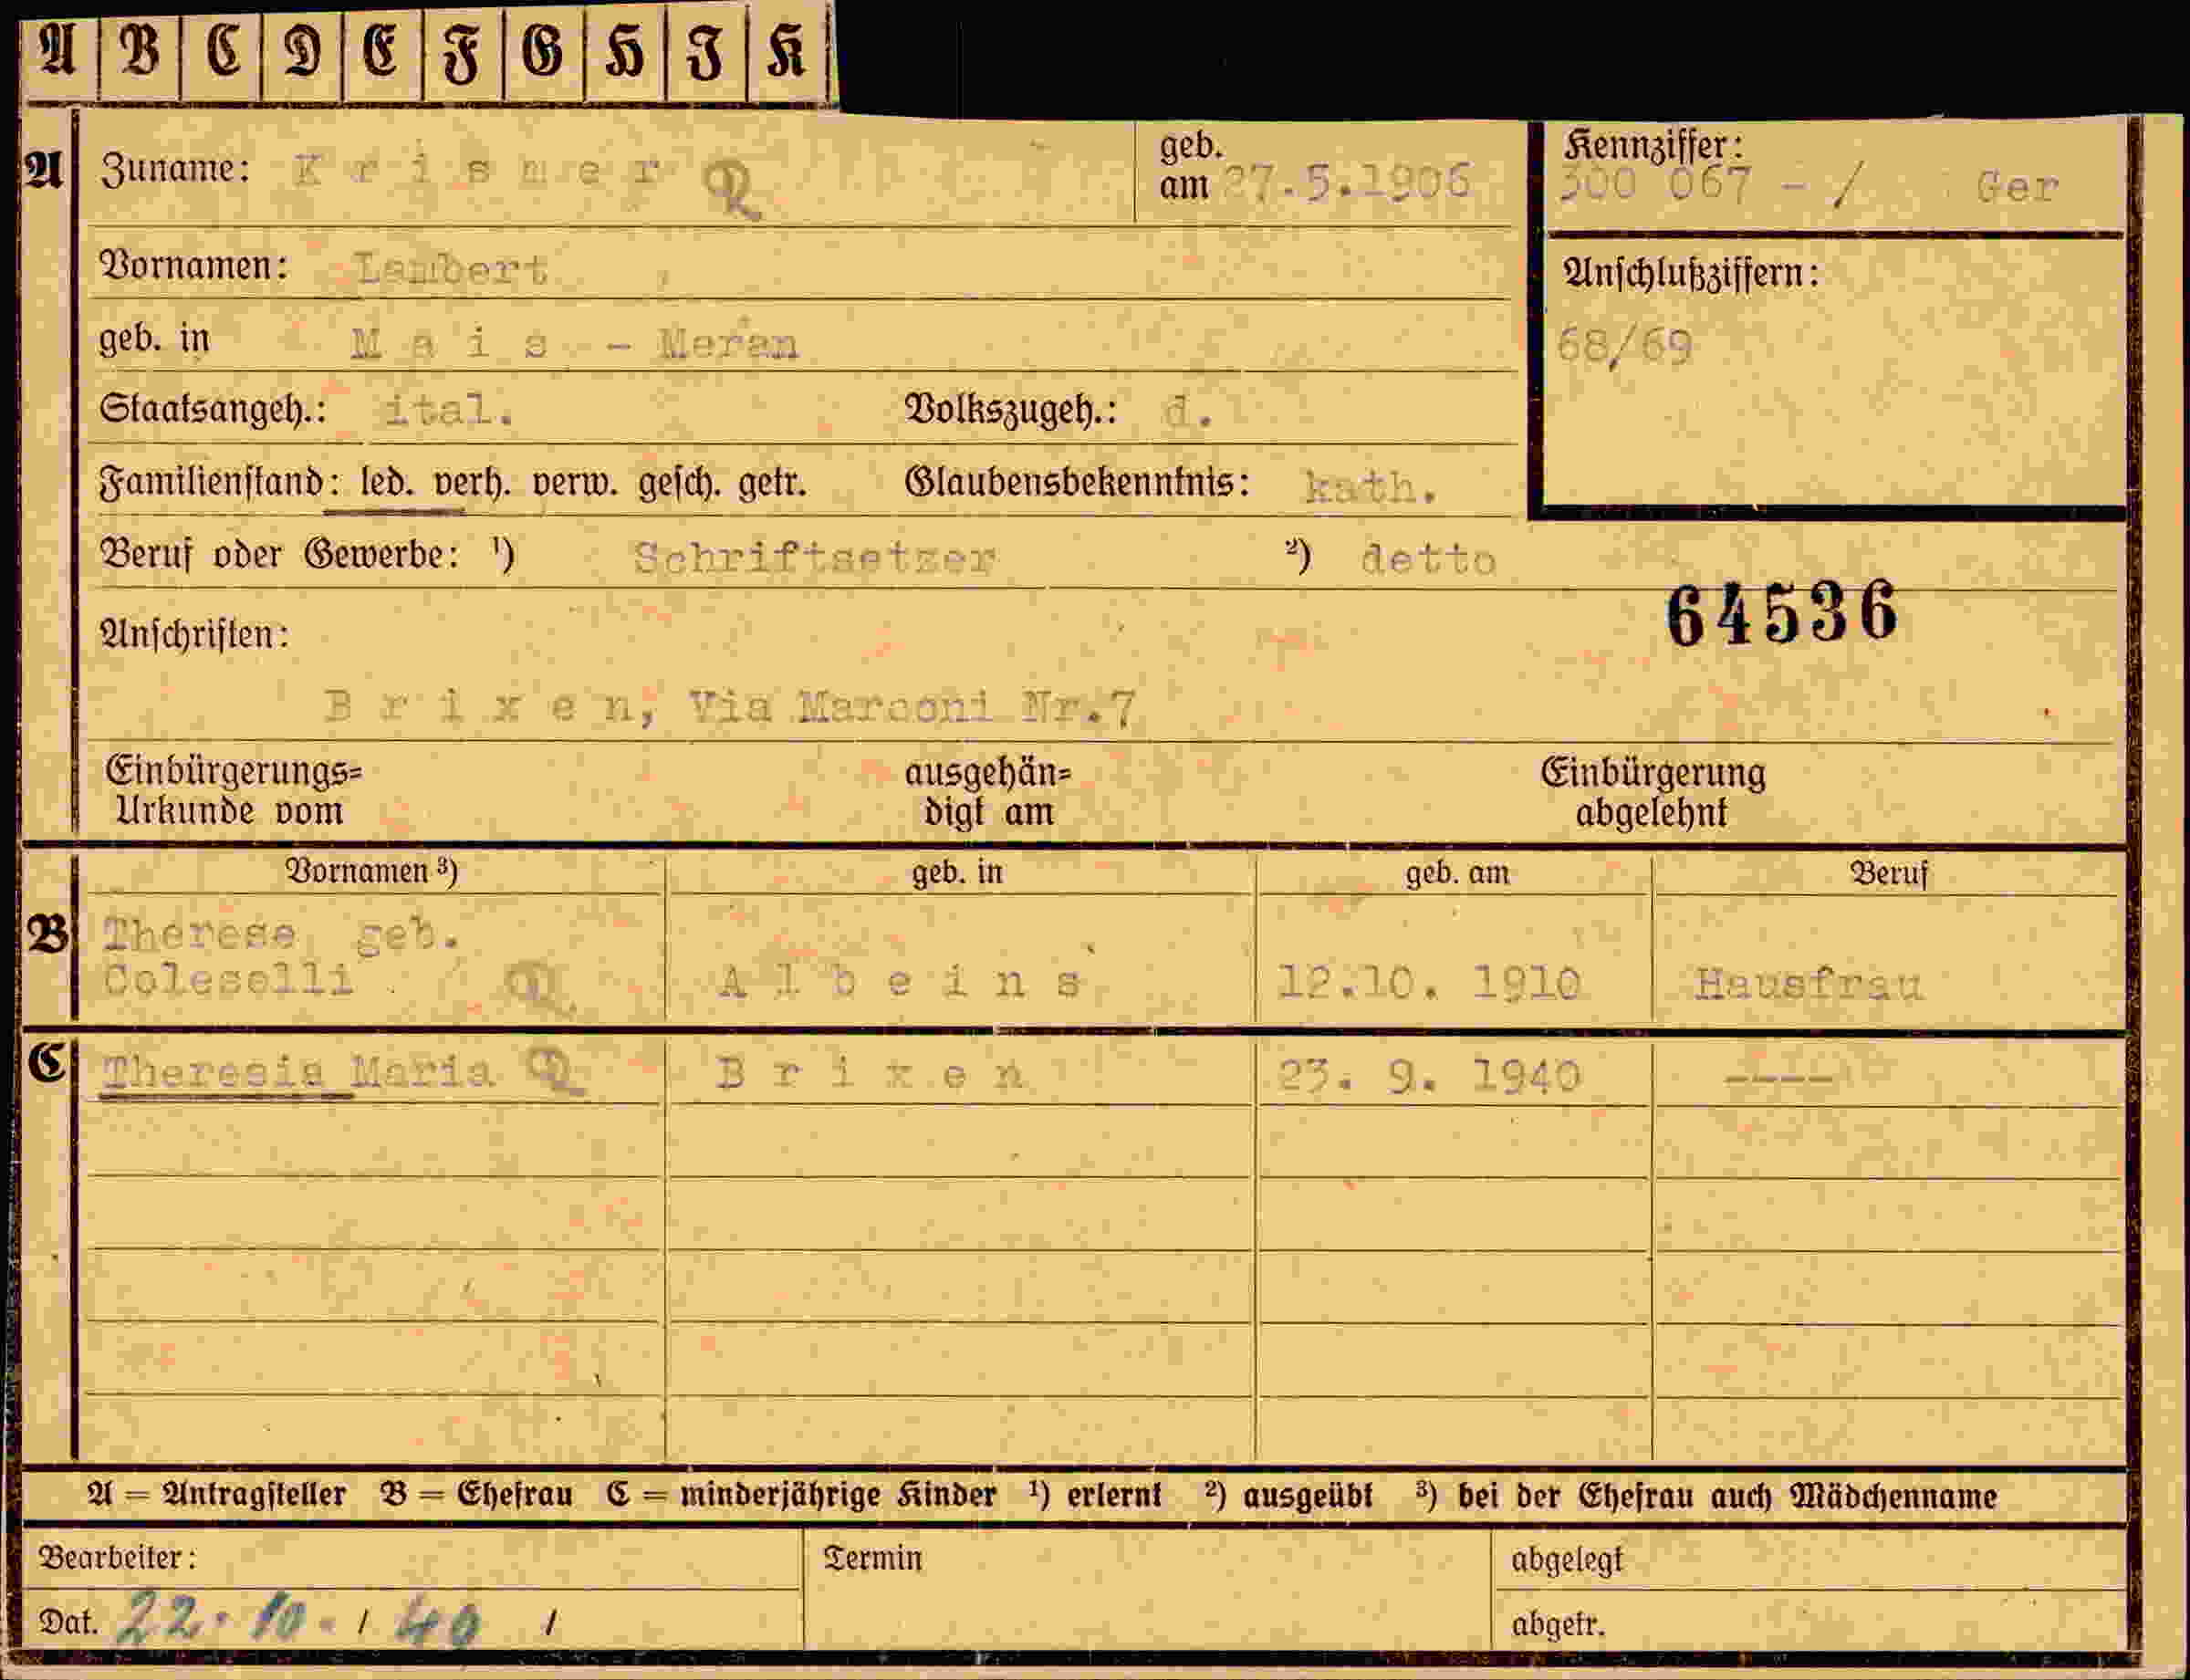 A B C D E F G H J K
A Zuname: Krismer geb. am 27.5.1906
Kennziffer: 300 067 - / Ger
Vornamen: Lambert
Anschlußziffern:
geb. in Mais - Meran
68/69
Staatsangeh.: ital. Volkszugeh.: d.
Familienstand: led. verh. verw. gesch. getr. Glaubensbekenntnis: kath.
Beruf oder Gewerbe: ¹) Schriftsetzer ²) detto
64536
Anschriften:
Brixen, Via Marconi Nr.7
Einbürgerungs= ausgehän= Einbürgerung
Urkunde vom digt am abgelehnt
Vornamen ³) geb. in geb. am Beruf
B Therese geb.
Coleselli Albeins 12.10. 1910 Hausfrau
C Theresia Maria Brixen 23. 9. 1940 ----
A = Antragsteller B = Ehefrau C = minderjährige Kinder ¹) erlernt ²) ausgeübt ³) bei der Ehefrau auch Mädchenname
Bearbeiter: Termin abgelegt
Dat. 22.10. / 40 / abgetr.